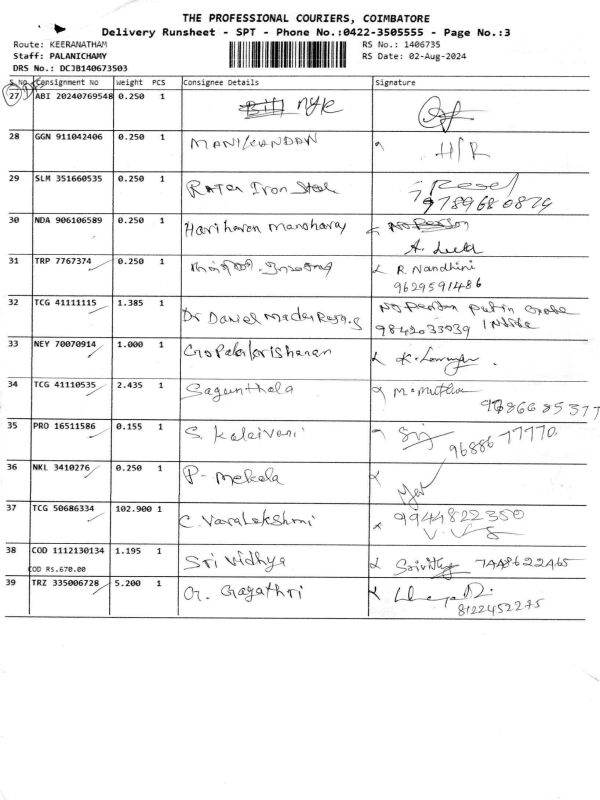 THE PROFESSIONAL COURIERS, COIMBATORE
Delivery Runsheet - SPT - Phone No.:0422-3505555 - Page No.:3
Route: KEERANATHAM RS No.: 1406735
Staff: PALANICHAMY RS Date: 02-Aug-2024
DRS No.: DCJB140673503
S No. Consignment No Weight PCS Consignee Details Signature
27 ABI 20240769548 0.250 1
28 GGN 911042406 0.250 1 MANIKANDAN H/R
29 SLM 351660535 0.250 1 Iron Steel
9789680874
30 NDA 906106589 0.250 1 Hariharan Manoharan No Person
31 TRP 7767374 0.250 1 R Nandhini
9629591486
32 TCG 41111115 1.385 1 Dr Daniel No person put in
9842033039 inside
33 NEY 70070914 1.000 1 Gopalakrishanan
34 TCG 41110535 2.435 1 Sagunthala M. Muthu
35 PRO 16511586 0.155 1 S. Kalaivani
9688677770
36 NKL 3410276 0.250 1 P. Mekala
37 TCG 50686334 102.900 1 C. Varalekshmi 9944822350
38 COD 1112130134 1.195 1 Sri Vidhya
COD Rs.670.00
39 TRZ 335006728 5.200 1 G. Gayathri
8122452275